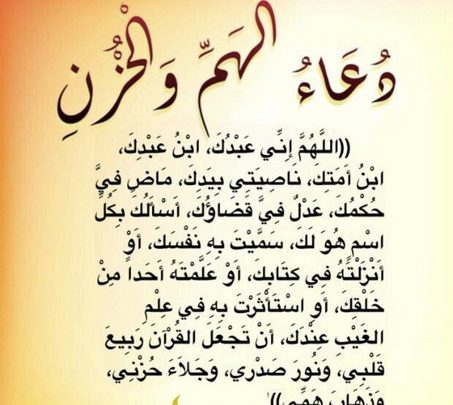 دُعَاءُ الهَمِّ وَالحُزْنِ
((اللَّهُمَّ إِنِّي عَبْدُكَ، ابْنُ عَبْدِكَ،
ابْنُ أَمَتِكَ، نَاصِيَتِي بِيَدِكَ، مَاضٍ فِيَّ
حُكْمُكَ، عَدْلٌ فِيَّ قَضَاؤُكَ، أَسْأَلُكَ بِكُلِّ
اسْمٍ هُوَ لَكَ، سَمَّيْتَ بِهِ نَفْسَكَ، أَوْ
أَنْزَلْتَهُ فِي كِتَابِكَ، أَوْ عَلَّمْتَهُ أَحَداً مِنْ
خَلْقِكَ، أَوِ اسْتَأْثَرْتَ بِهِ فِي عِلْمِ
الغَيْبِ عِنْدَكَ، أَنْ تَجْعَلَ القُرْآنَ رَبِيعَ
قَلْبِي، وَنُورَ صَدْرِي، وَجَلاَءَ حُزْنِي،
وَذَهَابَ هَمِّي))